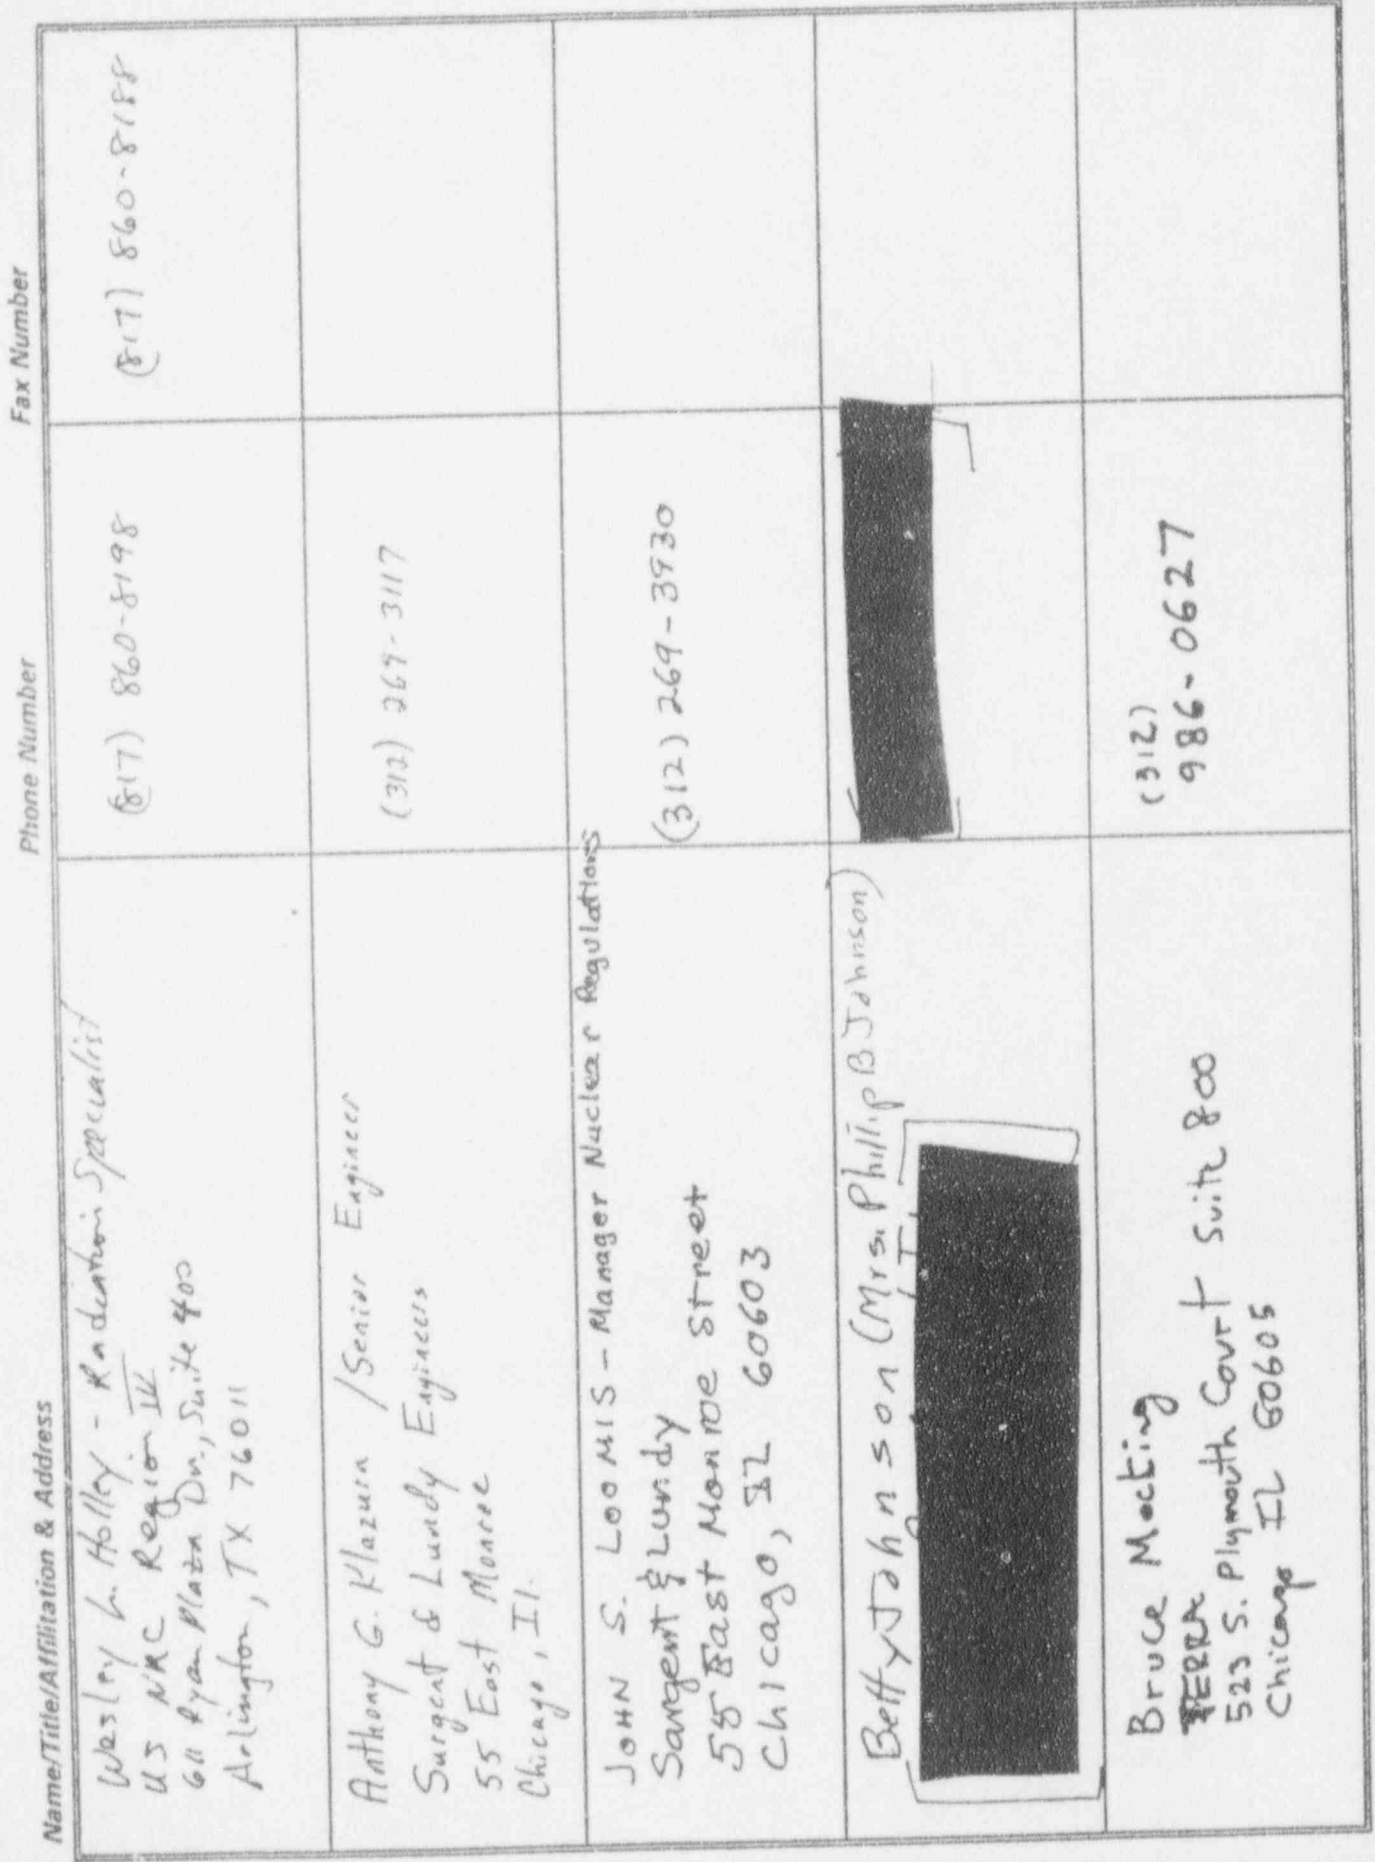 Name/Title/Affiliation & Address Phone Number Fax Number
Wesley L. Holley - Radiation Specialist
US NRC Region IV
611 Ryan Plaza Dr., Suite 400
Arlington, TX 76011
(817) 860-8198
(817) 860-8188
Anthony G. Klazura / Senior Engineer
Sargent & Lundy Engineers
55 East Monroe
Chicago, Il.
(312) 269-3117
JOHN S. LOOMIS - Manager Nuclear Regulations
Sargent & Lundy
55 East Monroe Street
Chicago, IL 60603
(312) 269-3930
Betty Johnson (Mrs. Phillip B Johnson)
Bruce
523 S. Plymouth Court Suite 800
Chicago IL 60605
(312)
986-0627